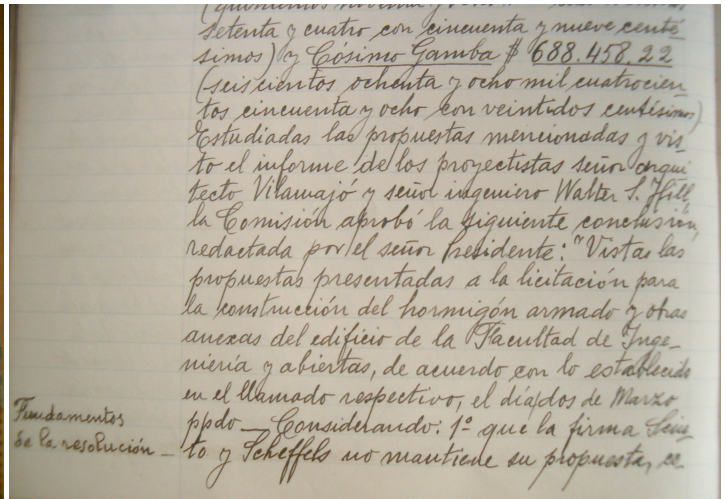 setenta y cuatro con cincuenta y nueve centé
simos) y Cósimo Gamba $ 688.458.22
(seiscientos ochenta y ocho mil cuatrocien
tos cincuenta y ocho con veintidos centésimos)
Estudiadas las propuestas mencionadas y vis
to el informe de los proyectistas señor arqui
tecto Vilamajó y señor ingeniero Walter S. Hill,
la Comisión aprobó la siguiente conclusión,
redactada por el señor Presidente: "Vistas las
propuestas presentadas a la licitación para
la construcción del hormigón armado y otras
anexas del edificio de la Facultad de Inge-
niería y abiertas, de acuerdo con lo establecido
en el llamado respectivo, el día dos de Marzo
ppdo — Considerando: 1º que la firma
Fundamentos
de la resolución —
to y Scheffels no mantiene su propuesta,